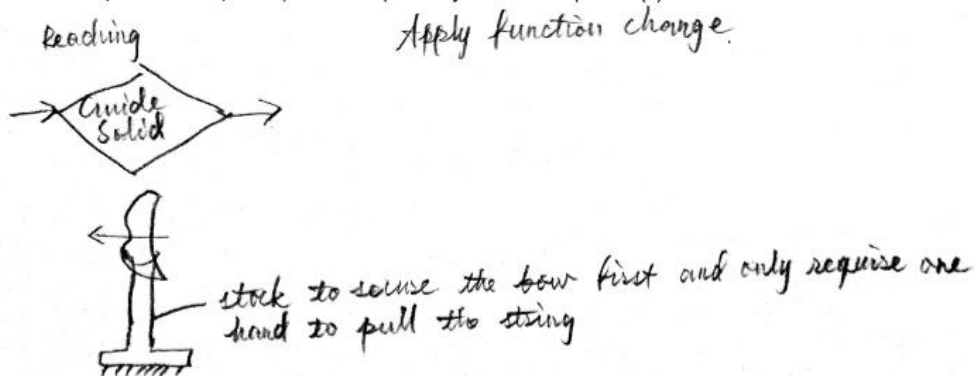 Reaching
Apply function change.
Guide
Solid
stock to secure the bow first and only require one
hand to pull the string